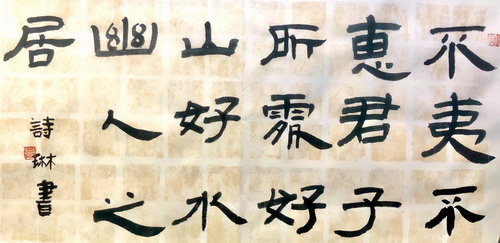 不夷不
惠君子
所處好
山好水
幽人之
居
詩琳書